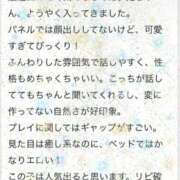 ん、ようやく入ってきました。
パネルでは顔出ししてないけど、可愛
すぎてびっくり！
ふんわりした雰囲気で話しやすく、性
格もめちゃくちゃいい。こっちが話し
ててもちゃんと聞いてくれるし、変に
作ってない自然さが好印象。
プレイに関してはギャップがすごい。
見た目は癒し系なのに、ベッドではか
なりエロい！
この子は人気出ると思います。リピ確